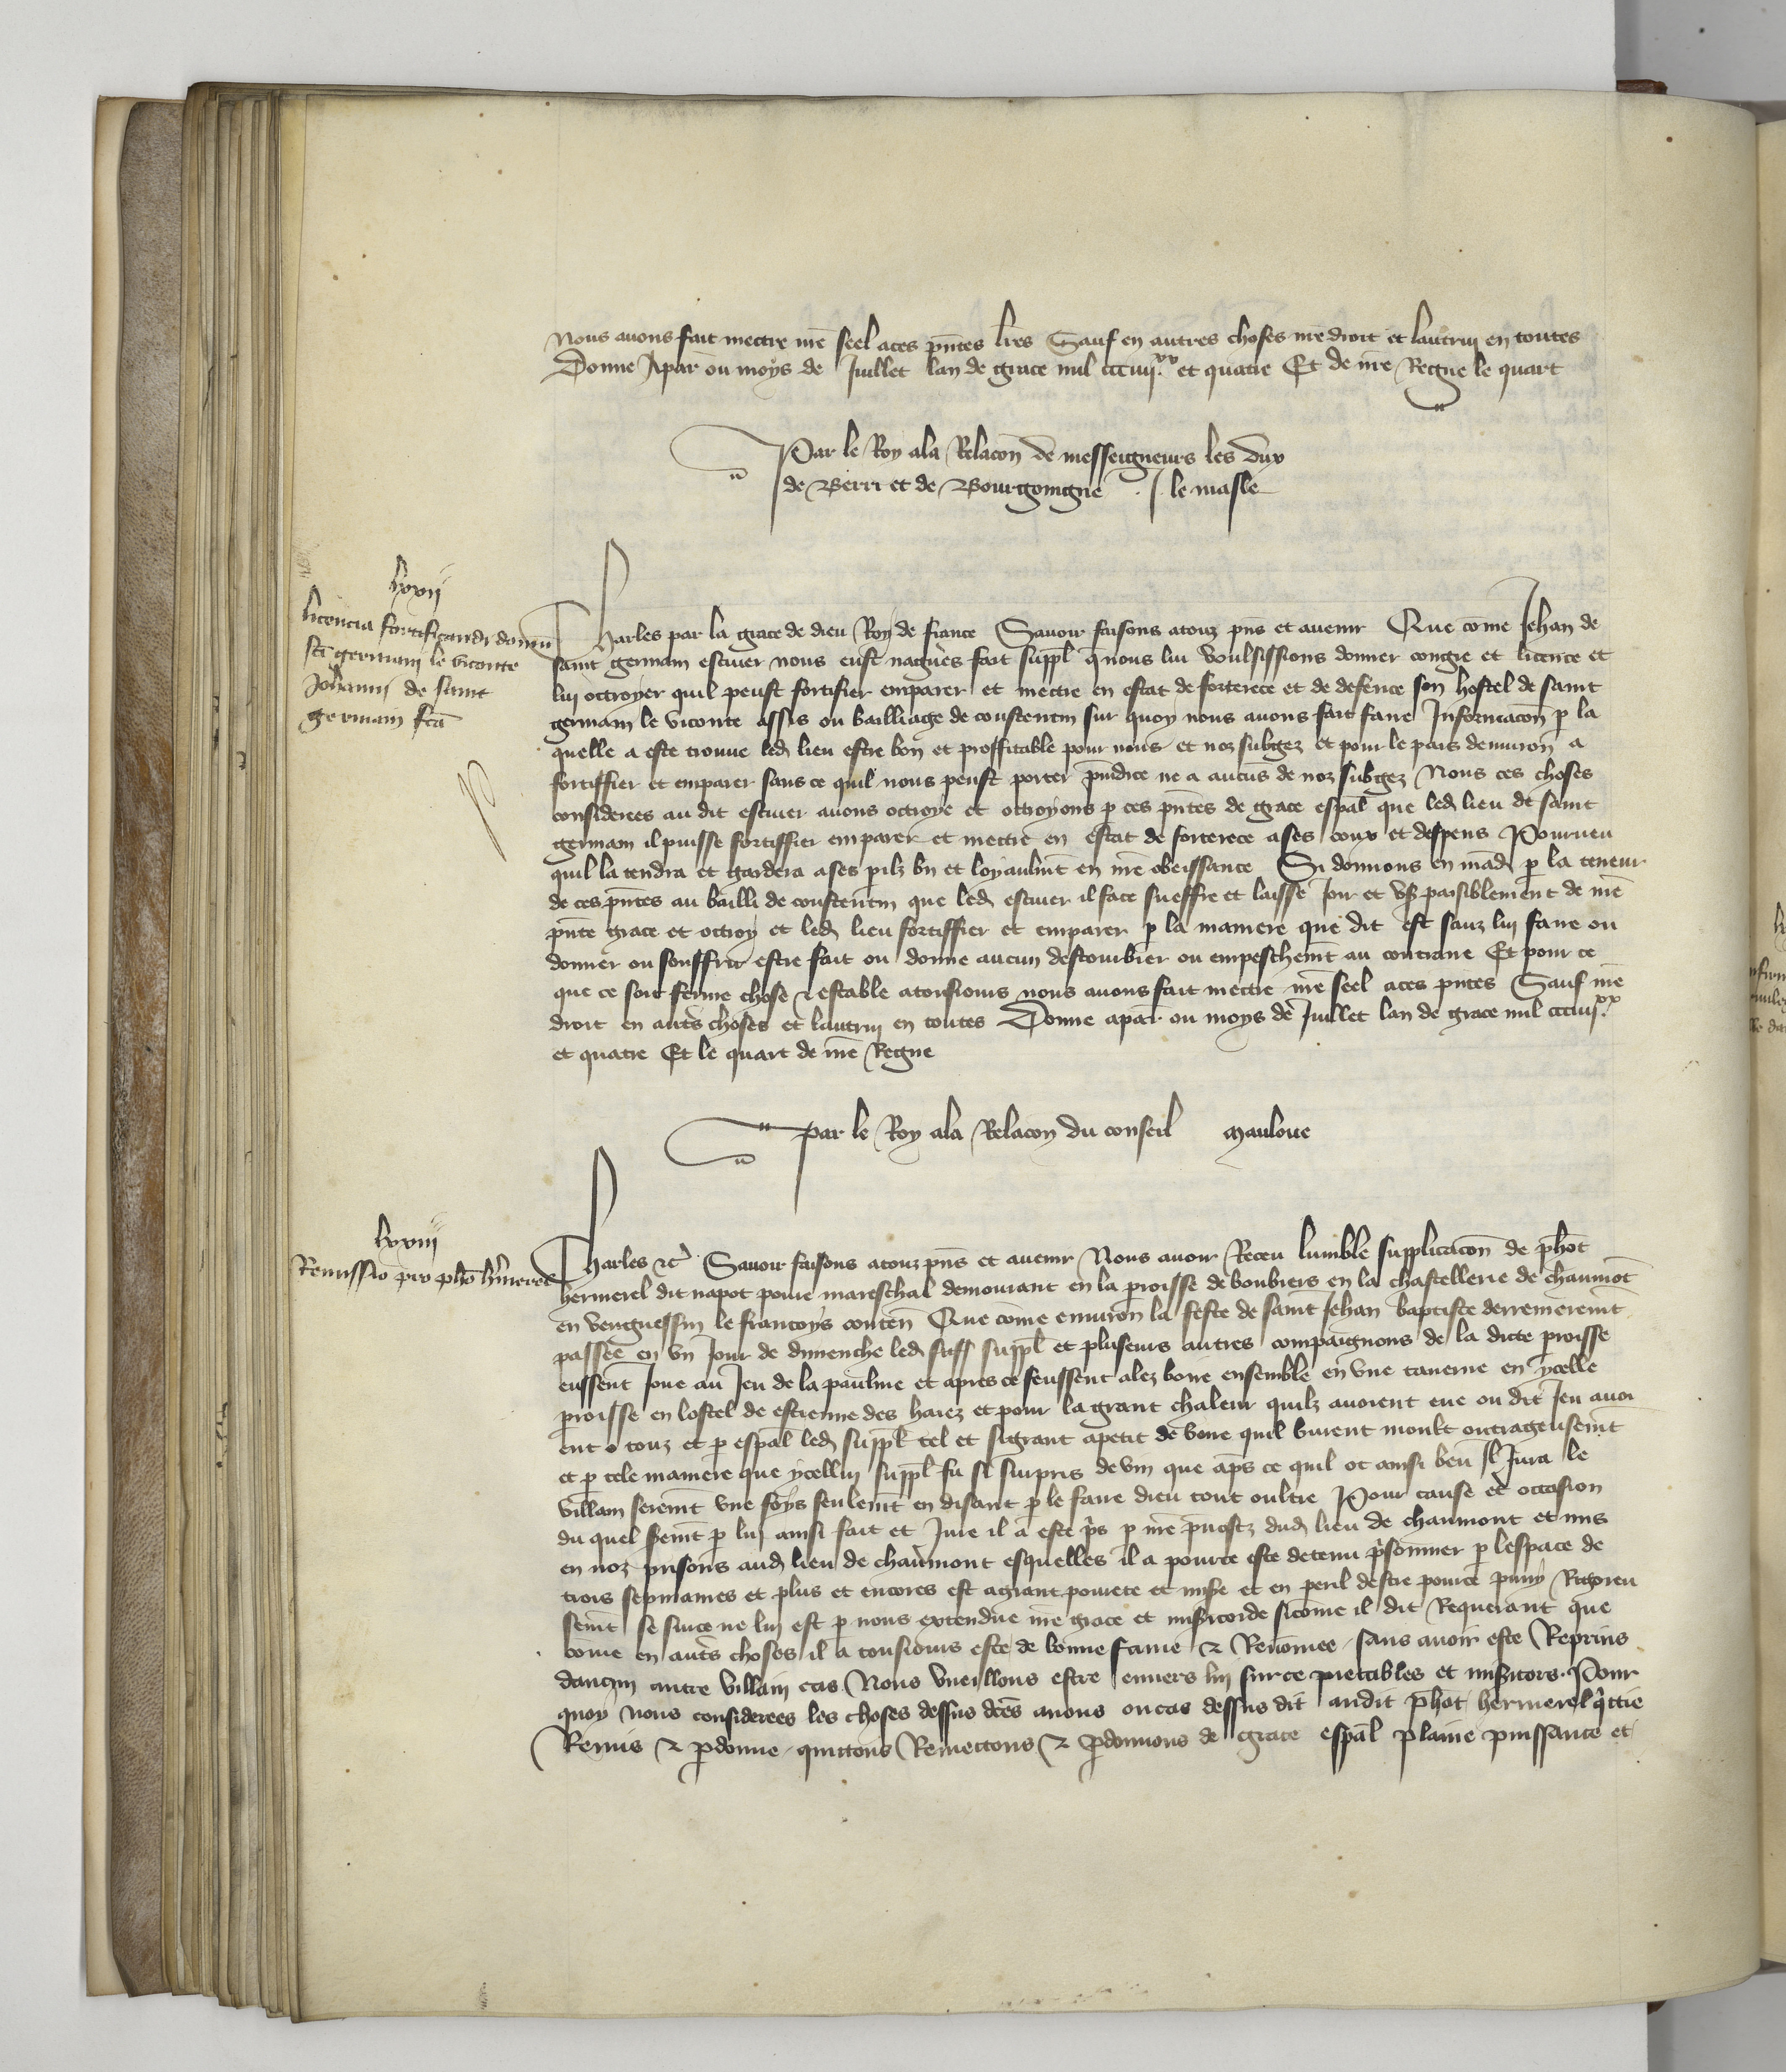 Nous avons fait mectre nr̄e seel a ces p̄ntes lr̄es Sauf en autres choses nr̄e droit et lautruy en toutes
Donne a par̄ ou moys de Juillet lan de grace mil ccciiij.xx et quatre Et de nr̄e Regne le quart
Par le Roy a la Relacōn de messeigneurs les dux
de Berri et de Bourgoingne . J. le masle
lxxij
licencia fortificandi domū
sc̄i germani le viconte
Johanni de saint
germain fcā
Charles par la grace de dieu Roy de france Savoir faisons a touz p̄ns et avenir Que cōme Jehan de
saint germain escuier nous eust nagueres fait suppl̄ q̄ nous lui voulsissions donner congie et licence et
lui octroyer quil peust fortifier emparer et mectre en estat de forterece et de defence son hostel de saint
germain le viconte assis ou bailliage de coustentin sur quoy nous avons fait faire Informacōn p̄ la
quelle a este trouve led̄ lieu estre bon et proffitable pour nous et noz subgez et pour le pais denviron a
fortiffier et emparer sans ce quil nous peust porter p̄iudice ne a aucūs de noz subgez Nous ces choses
considerees au dit escuier avons octroye et octroyons p̄ ces p̄ntes de grace esp̄al que led̄ lieu de saint
germain il puisse fortiffier emparer et mectre en estat de forterece a ses coux et despens Pourveu
quil la tendra et gardera a ses perilz bn̄ et loyaulmt̄ en nr̄e obeissance Si donnons en mād̄ p̄ la teneur
de ces p̄ntes au bailli de coustentin que led̄ escuier il face sueffre et laisse Joir et us̄ paisiblement de nr̄e
p̄nte grace et octroy et led̄ lieu fortiffier et emparer p̄ la maniere que dit est sanz lui faire ou
donner ou souffrir estre fait ou donne aucun destourbier ou empeschemt̄ au contraire Et pour ce
que ce soit ferme chose & estable a tousiours nous avons fait mectre nr̄e seel a ces p̄ntes Sauf nr̄e
droit en autr̄s choses et lautruy en toutes Donne a par̄ ou moys de Juillet lan de grace mil ccciiij.xx
et quatre Et le quart de nr̄e Regne
Par le Roy a la Relacōn du conseil Mauloue
lxxiij
Remissio pro pho h̄merel
Charles etc̄ Savoir faisons a touz p̄ns et avenir Nous avoir Receu lumble supplicacōn de ph̄ot
hermerel dit napot povre mareschal demourant en la p̄roisse de boubiers en la chastellerie de chaumōt
en veuguessin le francoys conten̄ Que cōme environ la feste de saint Jehan baptiste derrenieremt̄
passee en un Jour de dimenche led̄ suppl̄ et pluseurs autres compaignons de la dicte p̄roisse
eussent Joue au Jeu de la paulme et apres ce feussent alez boire ensemble en une taverne en ycelle
p̄roisse en lostel de estienne des haiez et pour la grant chaleur quilz avoient eue ou dit Jeu avoi
ent touz et p̄ esp̄al led̄ suppl̄ tel et si grant apetit de boire quil burent moult outrageusemt̄
et p̄ tele maniere que ycellui suppl̄ fu si surpris de vin que ap̄s ce quil ot ainsi beu Il Jura le
villain seremt̄ une foys seulemt̄ en disant p̄ le faire dieu tout oultre Pour cause et occasion
du quel sermt̄ p̄ lui ainsi fait et Jure il a este p̄s p̄ nr̄e p̄vost dud̄ lieu de chaumont et mis
en noz prisons aud̄ lieu de chaumont esquelles il a pource este detenu p̄sonnier p̄ lespace de
trois sepmaines et plus et encores est a grant povrete et mise et en peril destre pource puny Rigoreu
semt̄ se sur ce ne lui est p̄ nous extendue nr̄e grace et mis̄icorde si cōme il dit Requerant que
cōme en autr̄s choses il a tousiours este de bonne fame & Renōmee sans avoir este Reprins
daucun autre villain cas Nous vueillons estre envers lui sur ce pietables et mis̄icors. Pour
quoy Nous considerees les choses dessus dc̄es avons ou cas dessus dit audit ph̄ot hermerel q̄ttie
Remis & p̄donne quittons Remectons & p̄donnons de grace esp̄al plaine puissance et